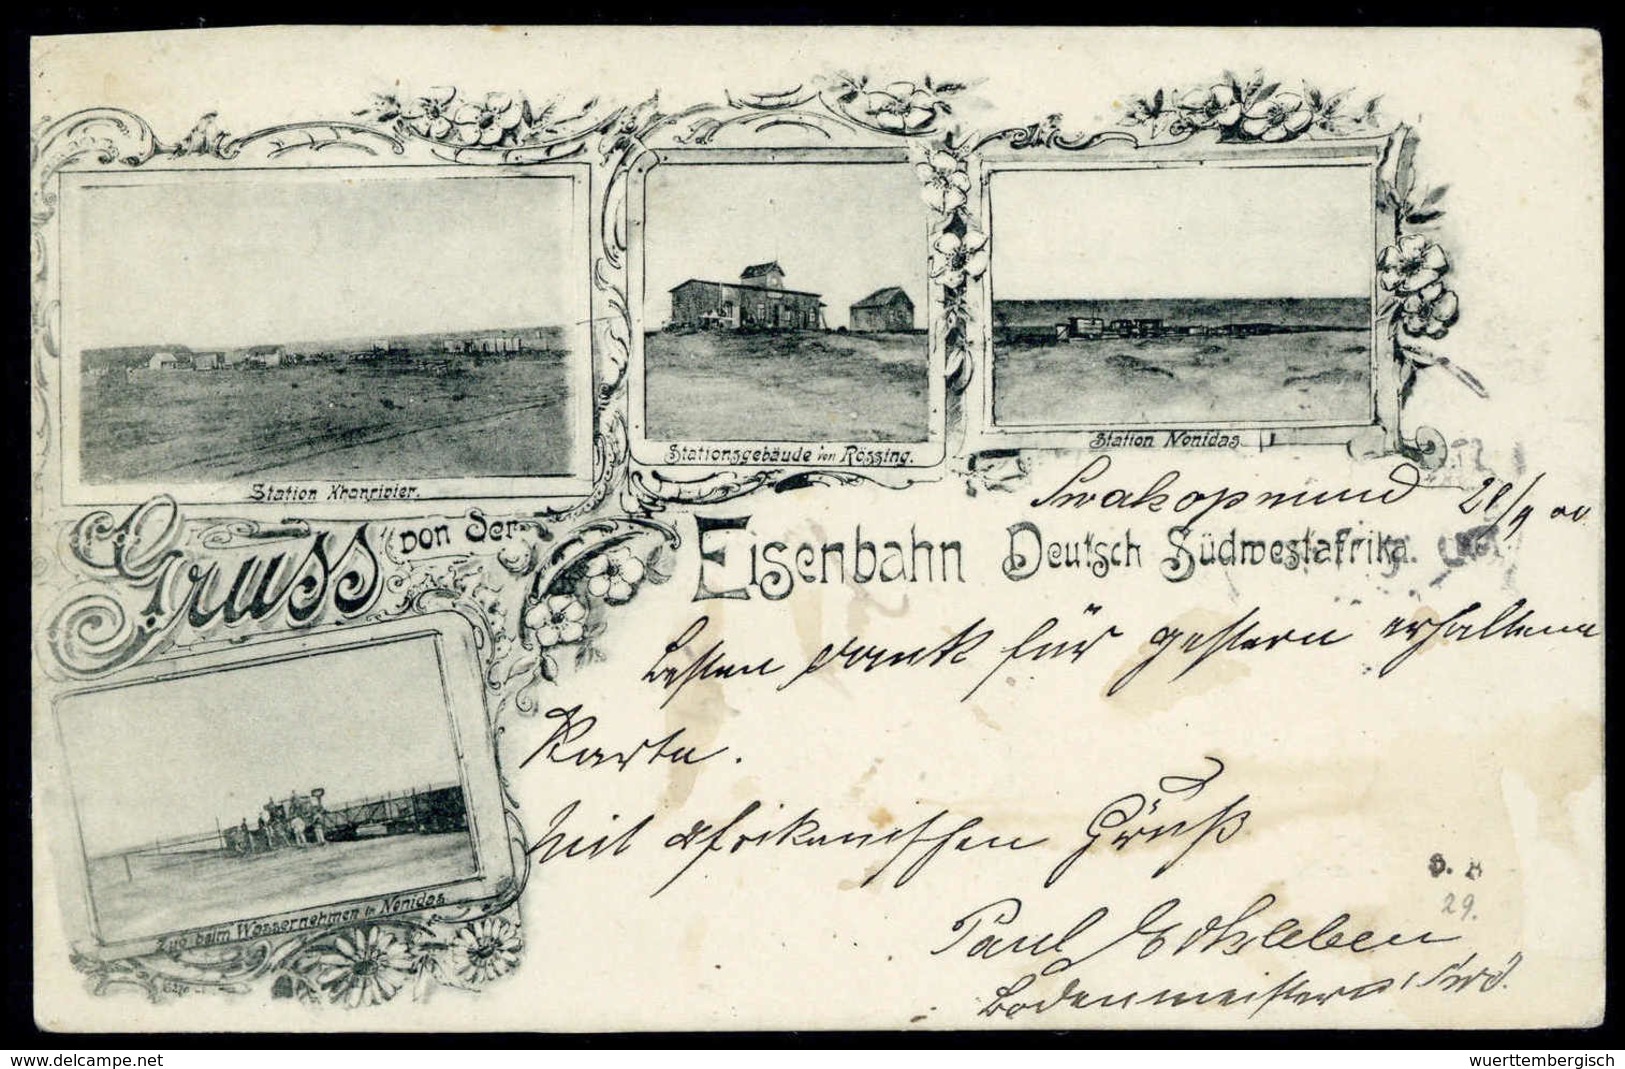 Station Khanrivier.
Stationsgebäude von Rössing.
Station Nonidas
Gruss von der Eisenbahn Deutsch Südwestafrika.
Swakopmund
Besten Dank für gestern erhaltene
Karte.
Mit afrikanischen Gruß
Paul
Zug beim Wassernehmen in Nonidas
29.
www.delcampe.net
wuerttembergisch